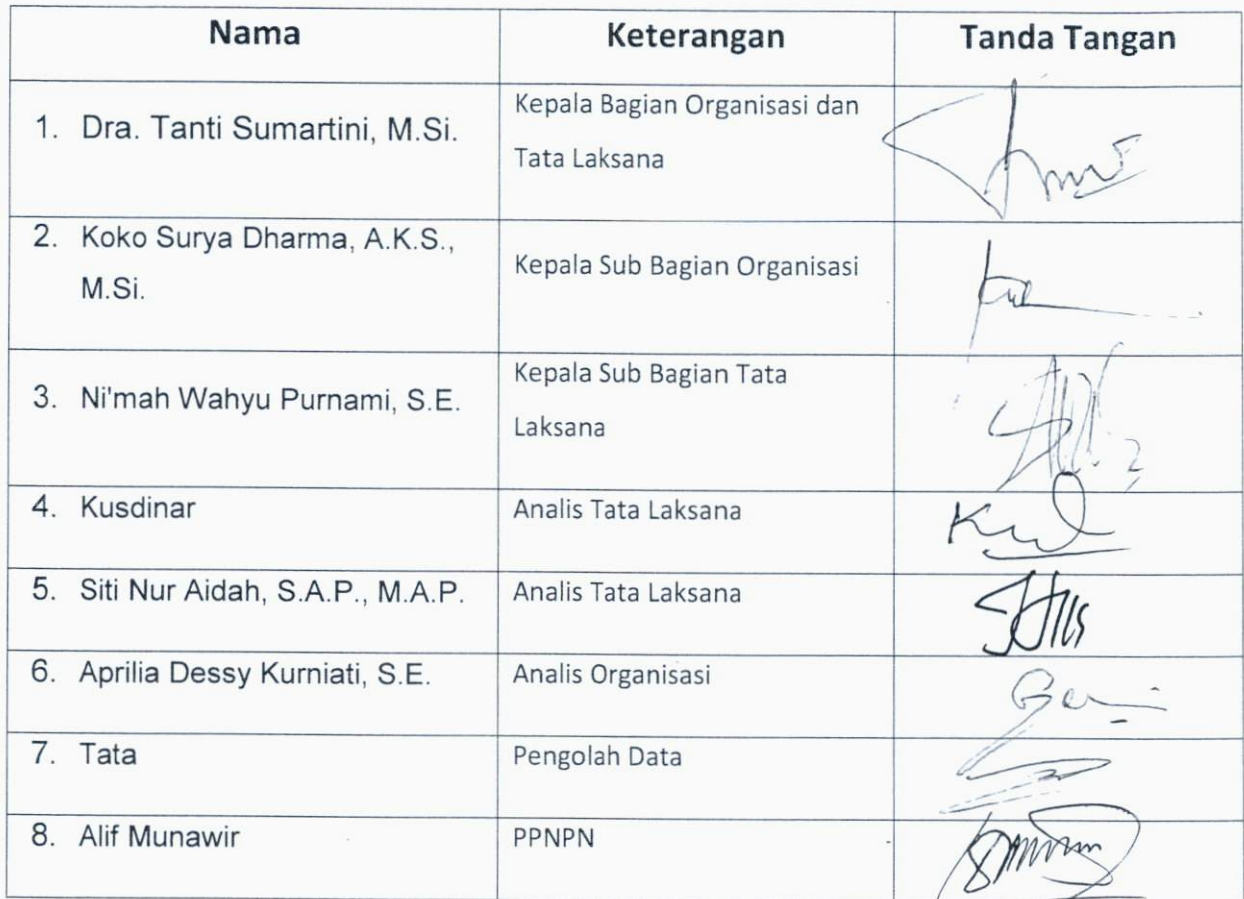 Nama Keterangan Tanda Tangan
1. Dra. Tanti Sumartini, M.Si. Kepala Bagian Organisasi dan
Tata Laksana
2. Koko Surya Dharma, A.K.S.,
M.Si. Kepala Sub Bagian Organisasi
3. Ni'mah Wahyu Purnami, S.E. Kepala Sub Bagian Tata
Laksana
4. Kusdinar Analis Tata Laksana
5. Siti Nur Aidah, S.A.P., M.A.P. Analis Tata Laksana
6. Aprilia Dessy Kurniati, S.E. Analis Organisasi
7. Tata Pengolah Data
8. Alif Munawir PPNPN